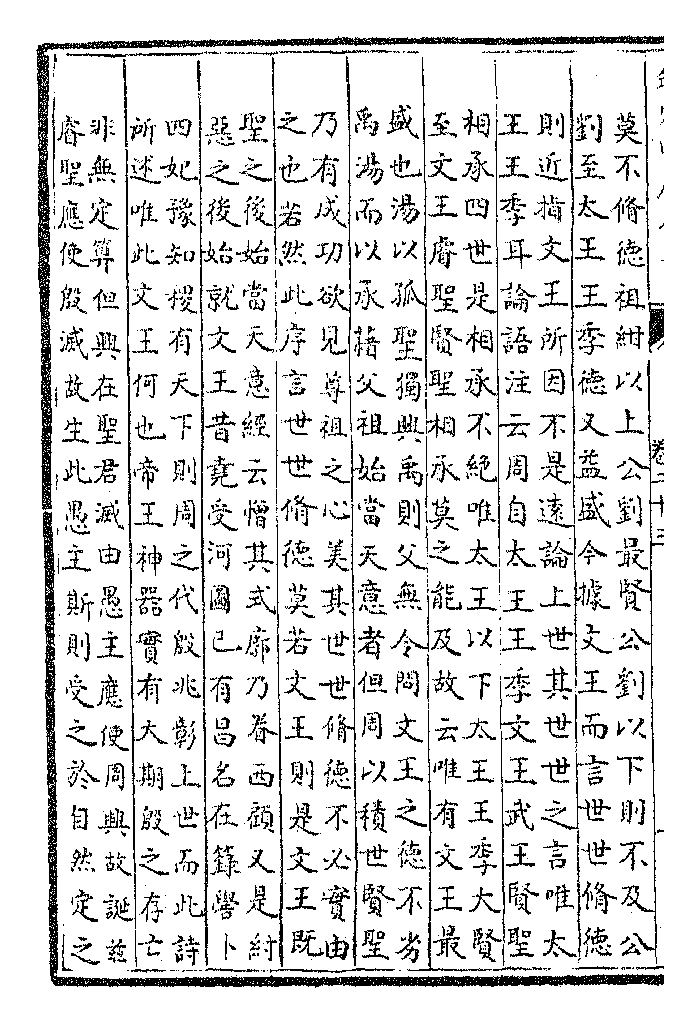 卷二十三
莫不脩德祖紺以上公劉最賢公劉以下則不及公
劉至太王王季德又益盛今據文王而言世世脩德
則近指文王所因不是遠論上世其世世之言唯太
王王季耳論語注云周自太王王季文王武王賢聖
相承四世是相承不絶唯太王以下太王王季大賢
至文王睿聖賢聖相承莫之能及故云唯有文王最
盛也湯以孤聖獨興禹則父無令問文王之德不劣
禹湯而以承藉父祖始當天意者但周以積世賢聖
乃有成功欲見尊祖之心美其世世脩德不必實由
之也若然此序言世世脩德莫若文王則是文王既
聖之後始當天意經云憎其式廓乃眷西顧又是紂
惡之後始就文王昔堯受河圖已有昌名在籙嚳卜
四妃豫知稷有天下則周之代殷兆彰上世而此詩
所述唯此文王何也帝王神器實有大期殷之存亡
非無定算但興在聖君滅由愚主應使周興故誕兹
睿聖應使殷滅故生此愚主斯則受之於自然定之